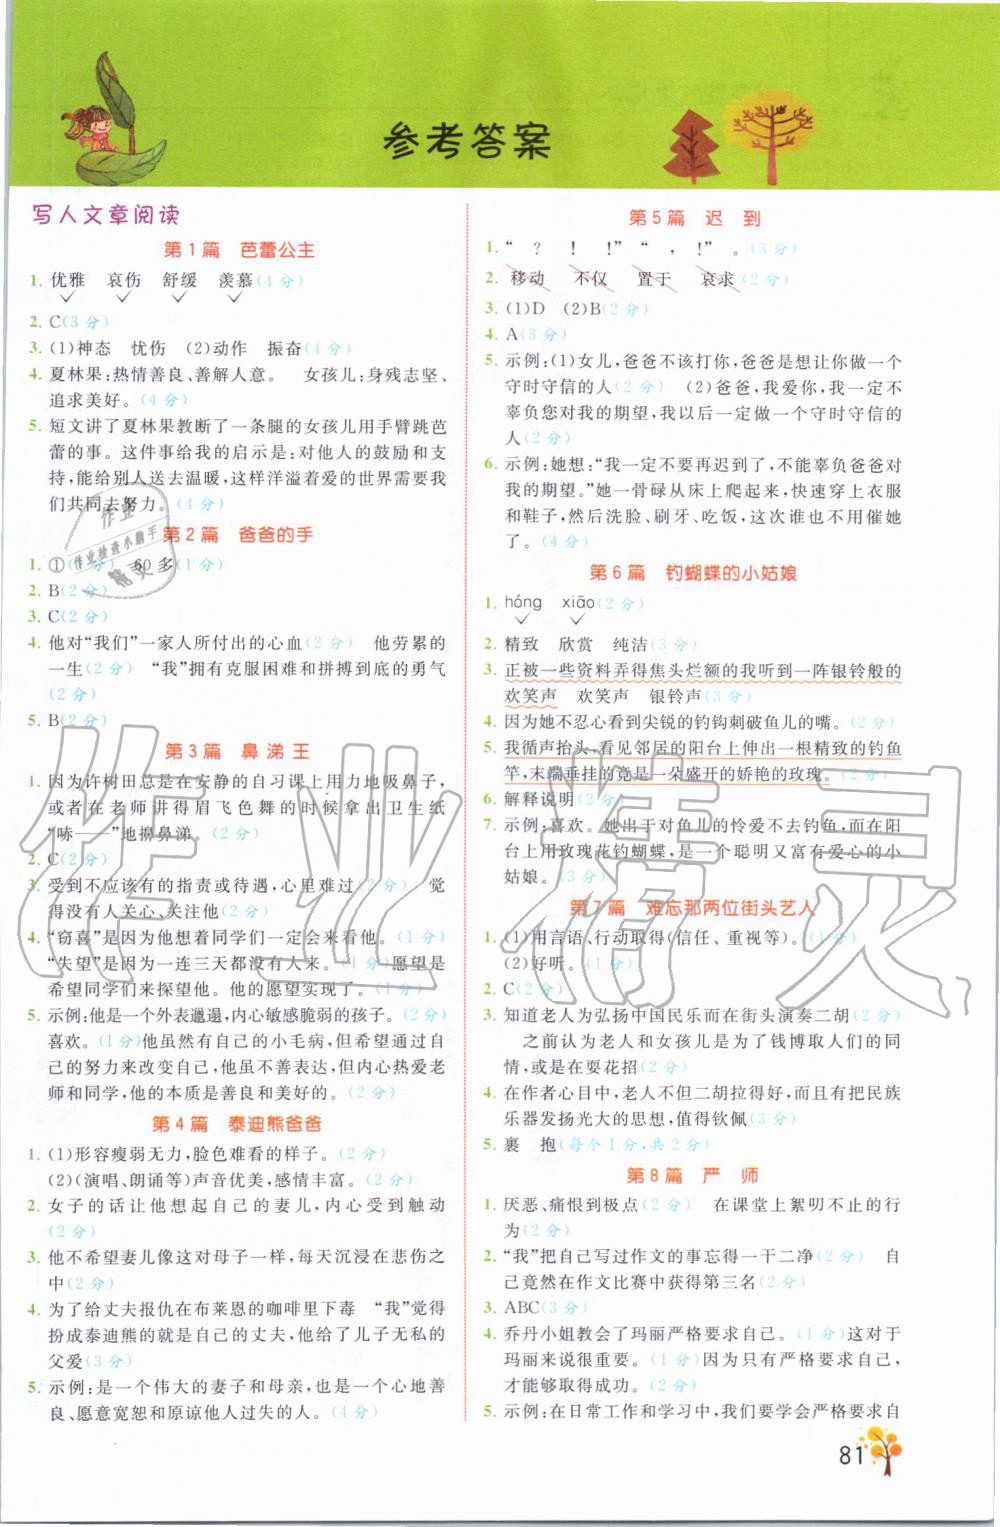 参考答案
写人文章阅读
第1篇 芭蕾公主
1. 优雅 哀伤 舒缓 羡慕(4分)
2. C(3分)
3. (1)神态 忧伤 (2)动作 振奋(4分)
4. 夏林果:热情善良、善解人意。 女孩儿:身残志坚、
追求美好。(4分)
5. 短文讲了夏林果教断了一条腿的女孩儿用手臂跳芭
蕾的事。这件事给我的启示是:对他人的鼓励和支
持,能给别人送去温暖,这样洋溢着爱的世界需要我
们共同去努力。(4分)
第2篇 爸爸的手
1. ①(1分) 60多(1分)
2. B(2分)
3. C(2分)
4. 他对“我们”一家人所付出的心血(2分) 他劳累的
一生(2分) “我”拥有克服困难和拼搏到底的勇气
(2分)
5. B(2分)
第3篇 鼻涕王
1. 因为许树田总是在安静的自习课上用力地吸鼻子,
或者在老师讲得眉飞色舞的时候拿出卫生纸
“哧——”地擤鼻涕。(2分)
2. C(2分)
3. 受到不应该有的指责或待遇,心里难过(2分) 觉
得没有人关心、关注他(2分)
4. “窃喜”是因为他想着同学们一定会来看他。(1分)
“失望”是因为一连三天都没有人来。(1分)愿望是
希望同学们来探望他。他的愿望实现了。(1分)
5. 示例:他是一个外表邋遢,内心敏感脆弱的孩子。(2分)
喜欢。(1分)他虽然有自己的小毛病,但希望通过自
己的努力来改变自己,他虽不善表达,但内心热爱老
师和同学,他的本质是善良和美好的。(2分)
第4篇 泰迪熊爸爸
1. (1)形容瘦弱无力,脸色难看的样子。(2分)
(2)(演唱、朗诵等)声音优美,感情丰富。(2分)
2. 女子的话让他想起自己的妻儿,内心受到触动
(2分)
3. 他不希望妻儿像这对母子一样,每天沉浸在悲伤之
中(2分)
4. 为了给丈夫报仇在布莱恩的咖啡里下毒 “我”觉得
扮成泰迪熊的就是自己的丈夫,他给了儿子无私的
父爱(3分)
5. 示例:是一个伟大的妻子和母亲,也是一个心地善
良、愿意宽恕和原谅他人过失的人。(4分)
第5篇 迟 到
1. “ ? ! !”“ , !”。(3分)
2. 移动 不仅 置于 哀求(2分)
3. (1)D (2)B(2分)
4. A(3分)
5. 示例:(1)女儿,爸爸不该打你,爸爸是想让你做一个
守时守信的人(2分) (2)爸爸,我爱你,我一定不
辜负您对我的期望,我以后一定会做一个守时守信的
人(2分)
6. 示例:她想:“我一定不要再迟到了,不能辜负爸爸对
我的期望。”她一骨碌从床上爬起来,快速穿上衣服
和鞋子,然后洗脸、刷牙、吃饭,这次谁也不用催她
了。(4分)
第6篇 钓蝴蝶的小姑娘
1. hóng xiāo(2分)
2. 精致 欣赏 纯洁(3分)
3. 正被一些资料弄得焦头烂额的我听到一阵银铃般的
欢笑声 欢笑声 银铃声(3分)
4. 因为她不忍心看到尖锐的钓钩刺破鱼儿的嘴。(2分)
5. 我循声抬头,看见邻居的阳台上伸出一根精致的钓鱼
竿,末端垂挂的竟是一朵盛开的娇艳的玫瑰。(2分)
6. 解释说明(2分)
7. 示例:喜欢。她出于对鱼儿的怜爱不去钓鱼,而在阳
台上用玫瑰花钓蝴蝶,是一个聪明又富有爱心的小
姑娘。(3分)
第7篇 难忘那两位街头艺人
1. (1)用言语、行动取得(信任、重视等)。(2分)
(2)好听。(2分)
2. C(2分)
3. 知道老人为弘扬中国民乐而在街头演奏二胡(2分)
之前认为老人和女孩儿是为了钱博取人们的同
情,或是在要花招(2分)
4. 在作者心目中,老人不但二胡拉得好,还有把民族
乐器发扬光大的思想,值得钦佩(4分)
5. 裹 抱(每个1分,共2分)
第8篇 严 师
1. 厌恶、痛恨到极点(2分) 在课堂上絮叨不止的行
为(2分)
2. “我”把自己写过作文的事忘得一干二净(2分) 自
己竟然在作文比赛中获得第三名(2分)
3. ABC(3分)
4. 乔丹小姐教会了玛丽严格要求自己。(1分)这对于
玛丽来说很重要。(1分)因为只有严格要求自己,
才能够取得成功。(2分)
5. 示例:在日常工作和学习中,我们要学会严格要求自
81
作业
作业检查小助手
精灵
作业精灵